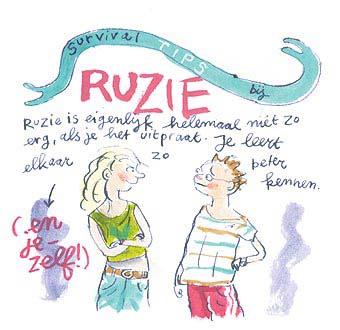 Survival TIPS bij
RUZIE
Ruzie is eigenlijk helemaal niét zo
erg, als je het uitpraat. Je leert
elkaar zo beter
kennen.
(..en
je-
zelf!)